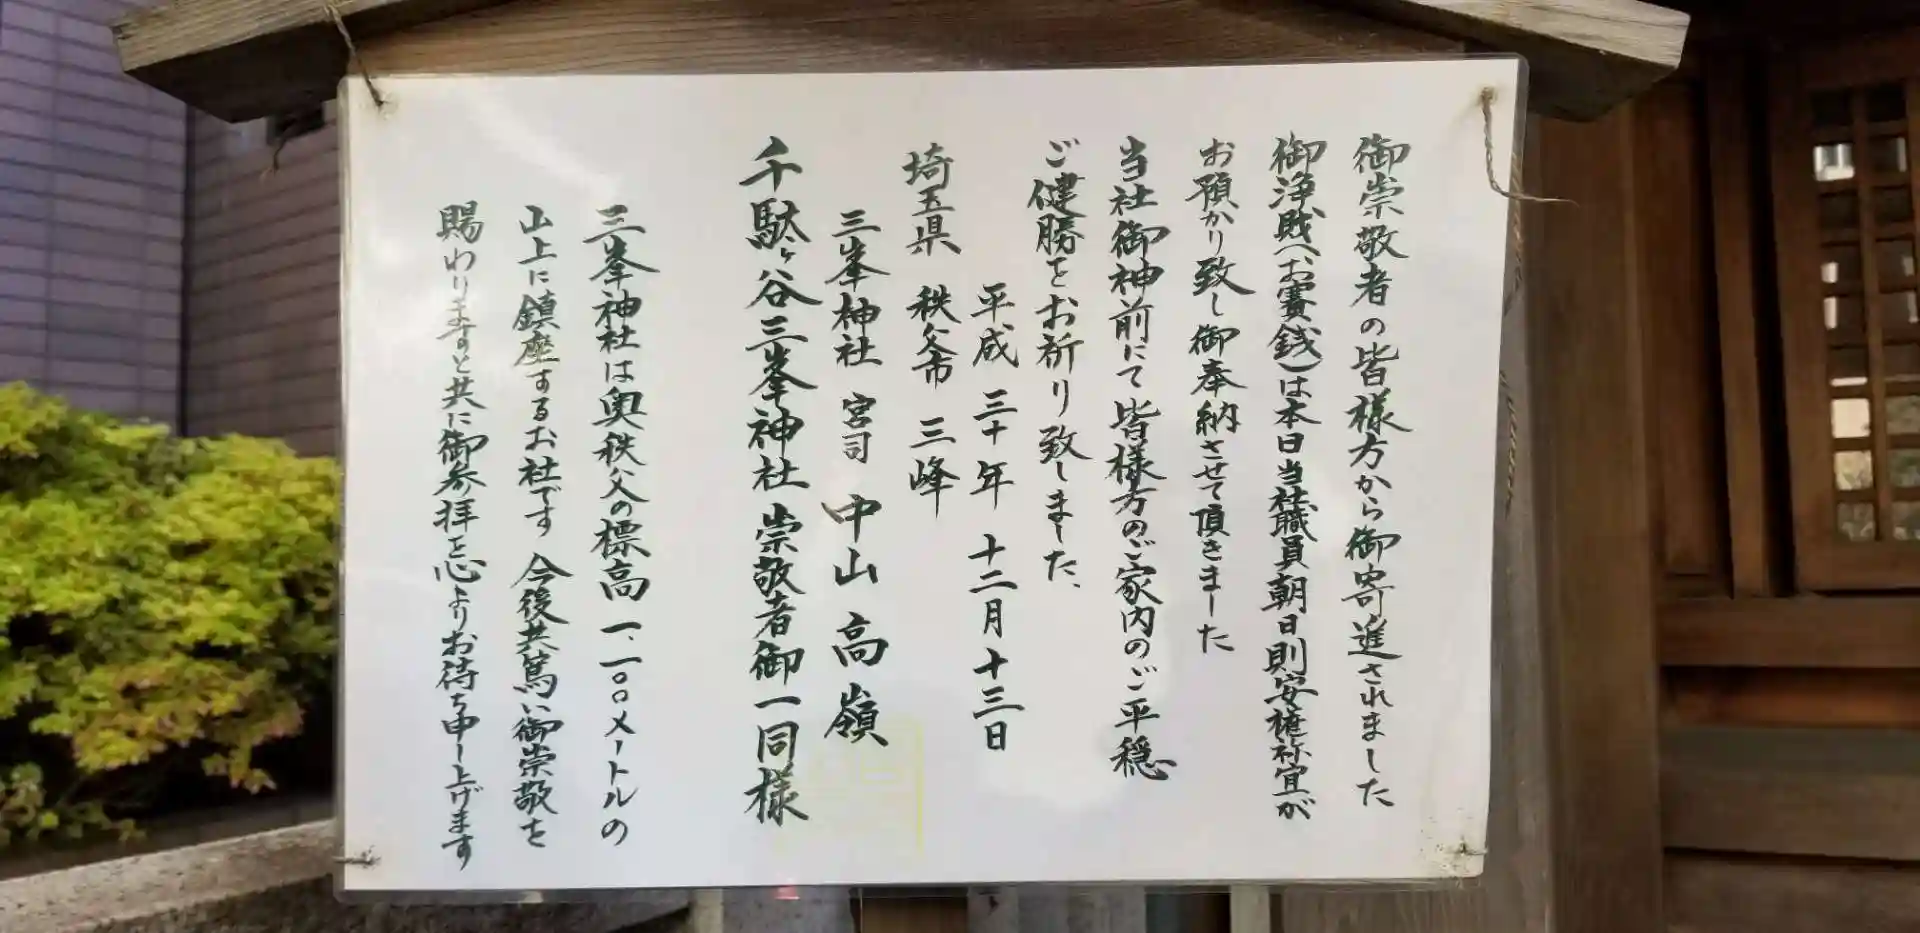 御崇敬者の皆様方から御寄進されました
御浄財(お賽銭)は本日当社職員朝日則安権祢宜が
お預かり致し御奉納させて頂きました
当社御神前にて皆様方のご家内のご平穏
ご健勝をお祈り致しました、
平成 三十年 十二月十三日
埼玉県 秩父市 三峰
三峯神社 宮司 中山高嶺
千駄ヶ谷三峯神社 崇敬者御一同様
三峯神社は奥秩父の標高 一、一〇〇メートルの
山上に鎮座するお社です 今後共篤い御崇敬を
賜わりますと共に御参拝を心よりお待ち申し上げます